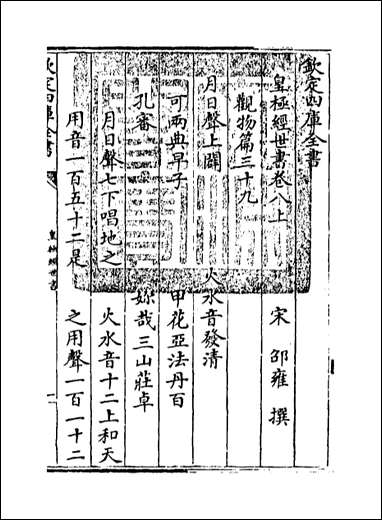 欽定四庫全書
皇極經世書卷八上
宋 邵雍 撰
觀物篇三十九
月日聲上闢 火水音發清
可兩典早子 甲花亞法丹百
孔審 妳哉三山莊卓
月日聲七下唱地之 火水音十二上和天
用音一百五十二是 之用聲一百一十二
欽定四庫全書
皇極經世書